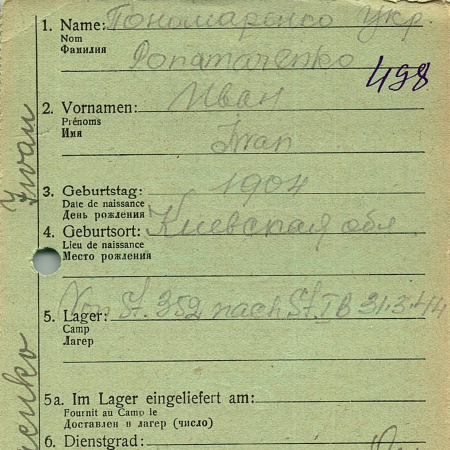 1. Name: Пономаренко Укр.
Nom
Фамилия
Ponomarenko
498
2. Vornamen: Иван
Prénoms
Имя
Iwan
3. Geburtstag: 1904
Date de naissance
День рождения
4. Geburtsort: Киевская обл.
Lieu de naissance
Место рождения
Von St. 352 nach St. IB 31.3.44
5. Lager:
Camp
Лагер
5a. Im Lager eingeliefert am:
Fournit au Camp le
Доставлен в лагер (число)
6. Dienstgrad:
Iwan
enko